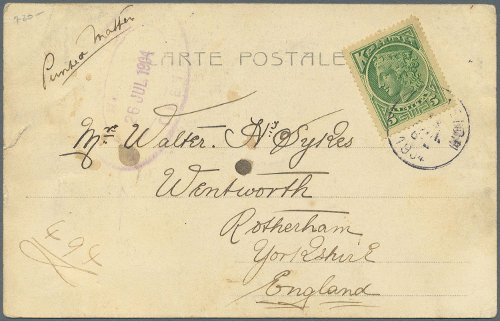 720-
Printed Matter
CARTE POSTALE
26 JUL 1904
Mrs Walter. H. Sykes
Wentworth
Rotherham
Yorkshire
England
494
5 5
1904